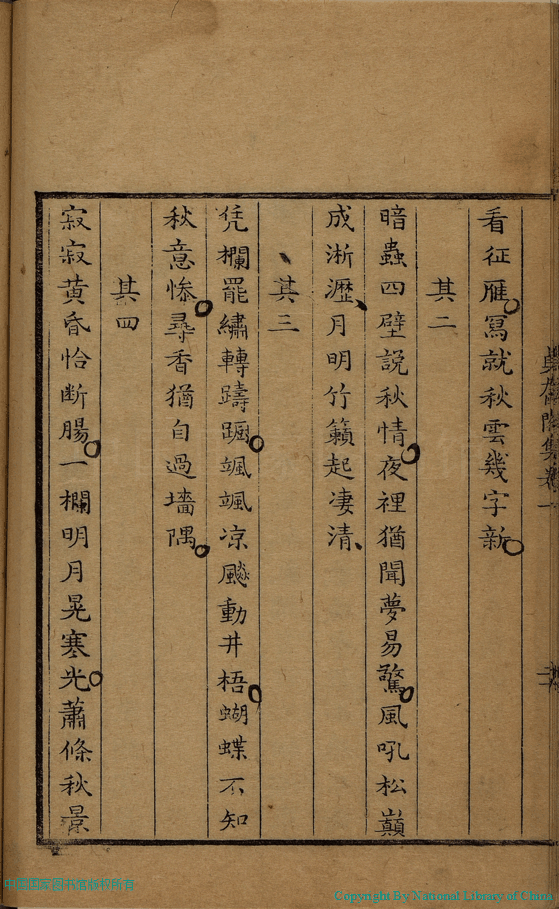 看征雁寫就秋雲幾字新
其二
暗蟲四壁說秋情夜裡猶聞夢易驚風吼松巔
成淅瀝月明竹籟起凄清
其三
凭欄罷繡轉躊躕颯颯凉飈動井梧蝴蝶不知
秋意慘尋香猶自過墻隅
其四
寂寂黃昏恰断腸一欄明月晃寒光蕭條秋景
中国国家图书馆版权所有
Copyright By National Library of China